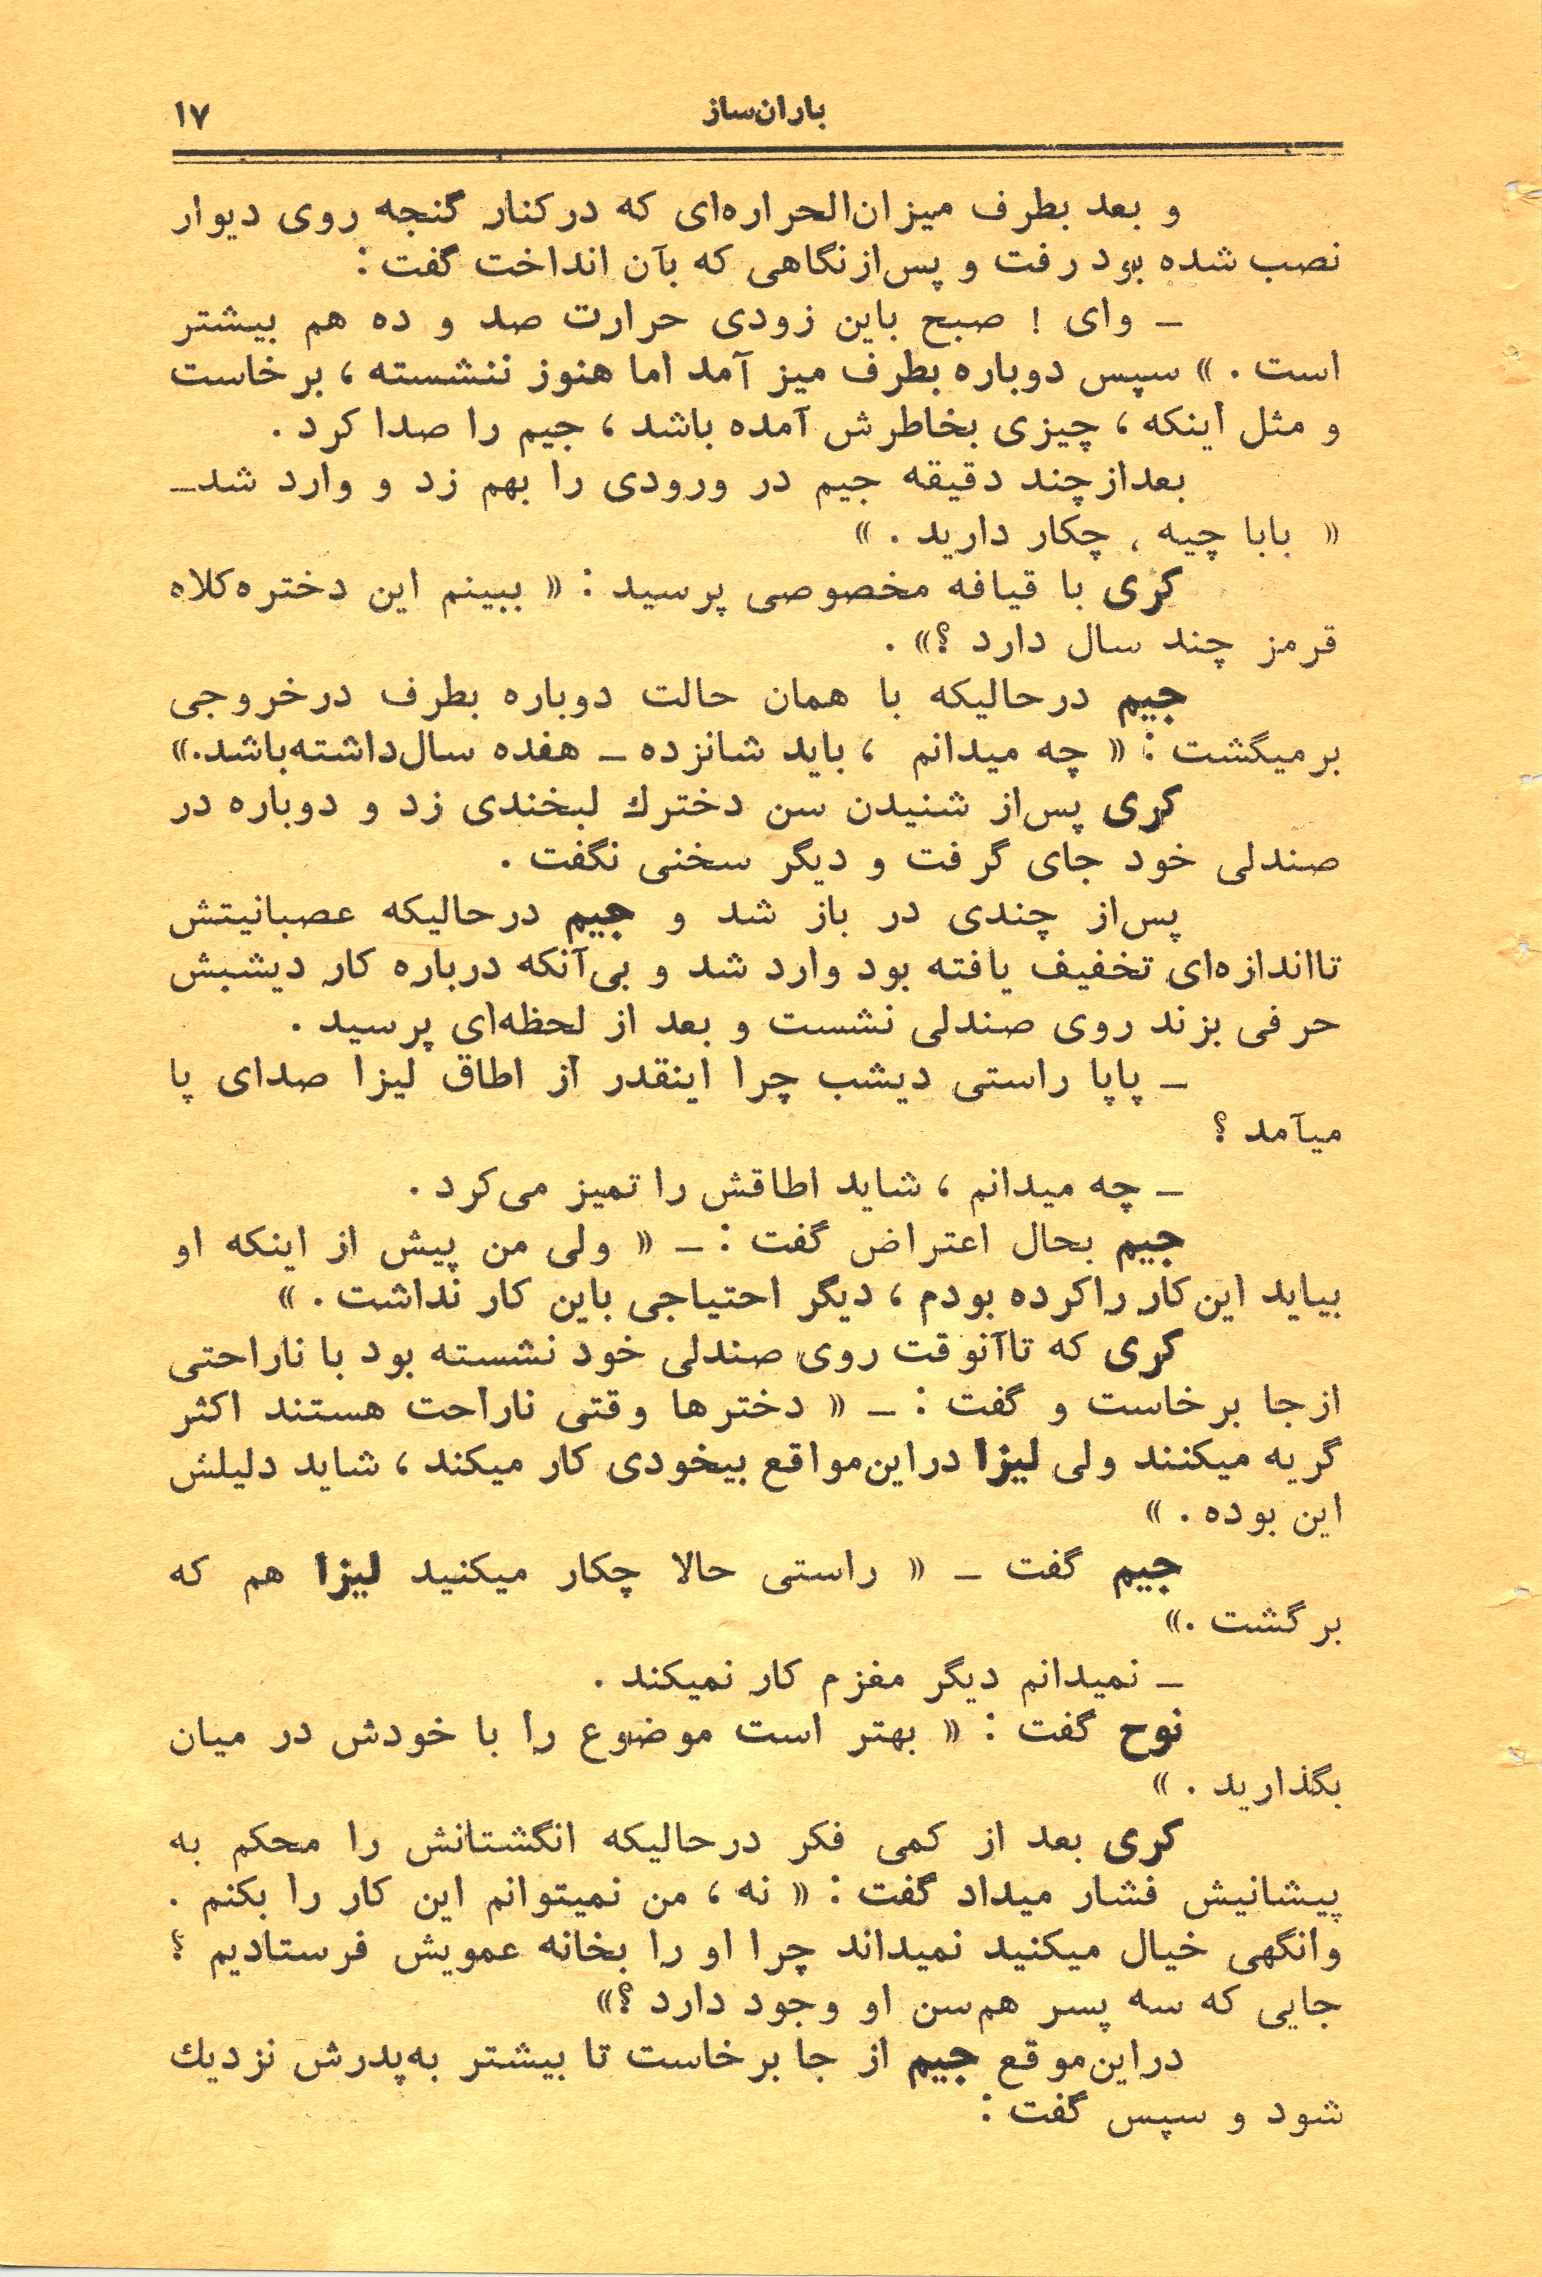 باران‌ساز ۱۷
و بعد بطرف میزان‌الحراره‌ای که درکنار گنجه روی دیوار
نصب شده بود رفت و پس‌ازنگاهی که بآن انداخت گفت :
ـ وای ! صبح باین زودی حرارت صد و ده هم بیشتر
است . » سپس دوباره بطرف میز آمد اما هنوز ننشسته ، برخاست
و مثل اینکه ، چیزی بخاطرش آمده باشد ، جیم را صدا کرد .
بعدازچند دقیقه جیم در ورودی را بهم زد و وارد شدـ
« بابا چیه ، چکار دارید . »
کری با قیافه مخصوصی پرسید : « ببینم این دختره‌کلاه
قرمز چند سال دارد ؟» .
جیم درحالیکه با همان حالت دوباره بطرف درخروجی
برمیگشت : « چه میدانم ، باید شانزده ـ هفده سال‌داشته‌باشد.»
کری پس‌از شنیدن سن دخترك لبخندی زد و دوباره در
صندلی خود جای گرفت و دیگر سخنی نگفت .
پس‌از چندی در باز شد و جیم درحالیکه عصبانیتش
تااندازه‌ای تخفیف یافته بود وارد شد و بی‌آنکه درباره کار دیشبش
حرفی بزند روی صندلی نشست و بعد از لحظه‌ای پرسید .
ـ پاپا راستی دیشب چرا اینقدر از اطاق لیزا صدای پا
میآمد ؟
ـ چه میدانم ، شاید اطاقش را تمیز می‌کرد .
جیم بحال اعتراض گفت : ـ « ولی من پیش از اینکه او
بیاید این‌کار راکرده بودم ، دیگر احتیاجی باین کار نداشت . »
کری که تاآنوقت روی صندلی خود نشسته بود با ناراحتی
ازجا برخاست و گفت : ـ « دخترها وقتی ناراحت هستند اکثر
گریه میکنند ولی لیزا دراین‌مواقع بیخودی کار میکند ، شاید دلیلش
این بوده . »
جیم گفت ـ « راستی حالا چکار میکنید لیزا هم که
برگشت .»
ـ نمیدانم دیگر مغزم کار نمیکند .
نوح گفت : « بهتر است موضوع را با خودش در میان
بگذارید . »
کری بعد از کمی فکر درحالیکه انگشتانش را محکم به
پیشانیش فشار میداد گفت : « نه ، من نمیتوانم این کار را بکنم .
وانگهی خیال میکنید نمیداند چرا او را بخانه عمویش فرستادیم ؟
جایی که سه پسر هم‌سن او وجود دارد ؟»
دراین‌موقع جیم از جا برخاست تا بیشتر به‌پدرش نزدیك
شود و سپس گفت :